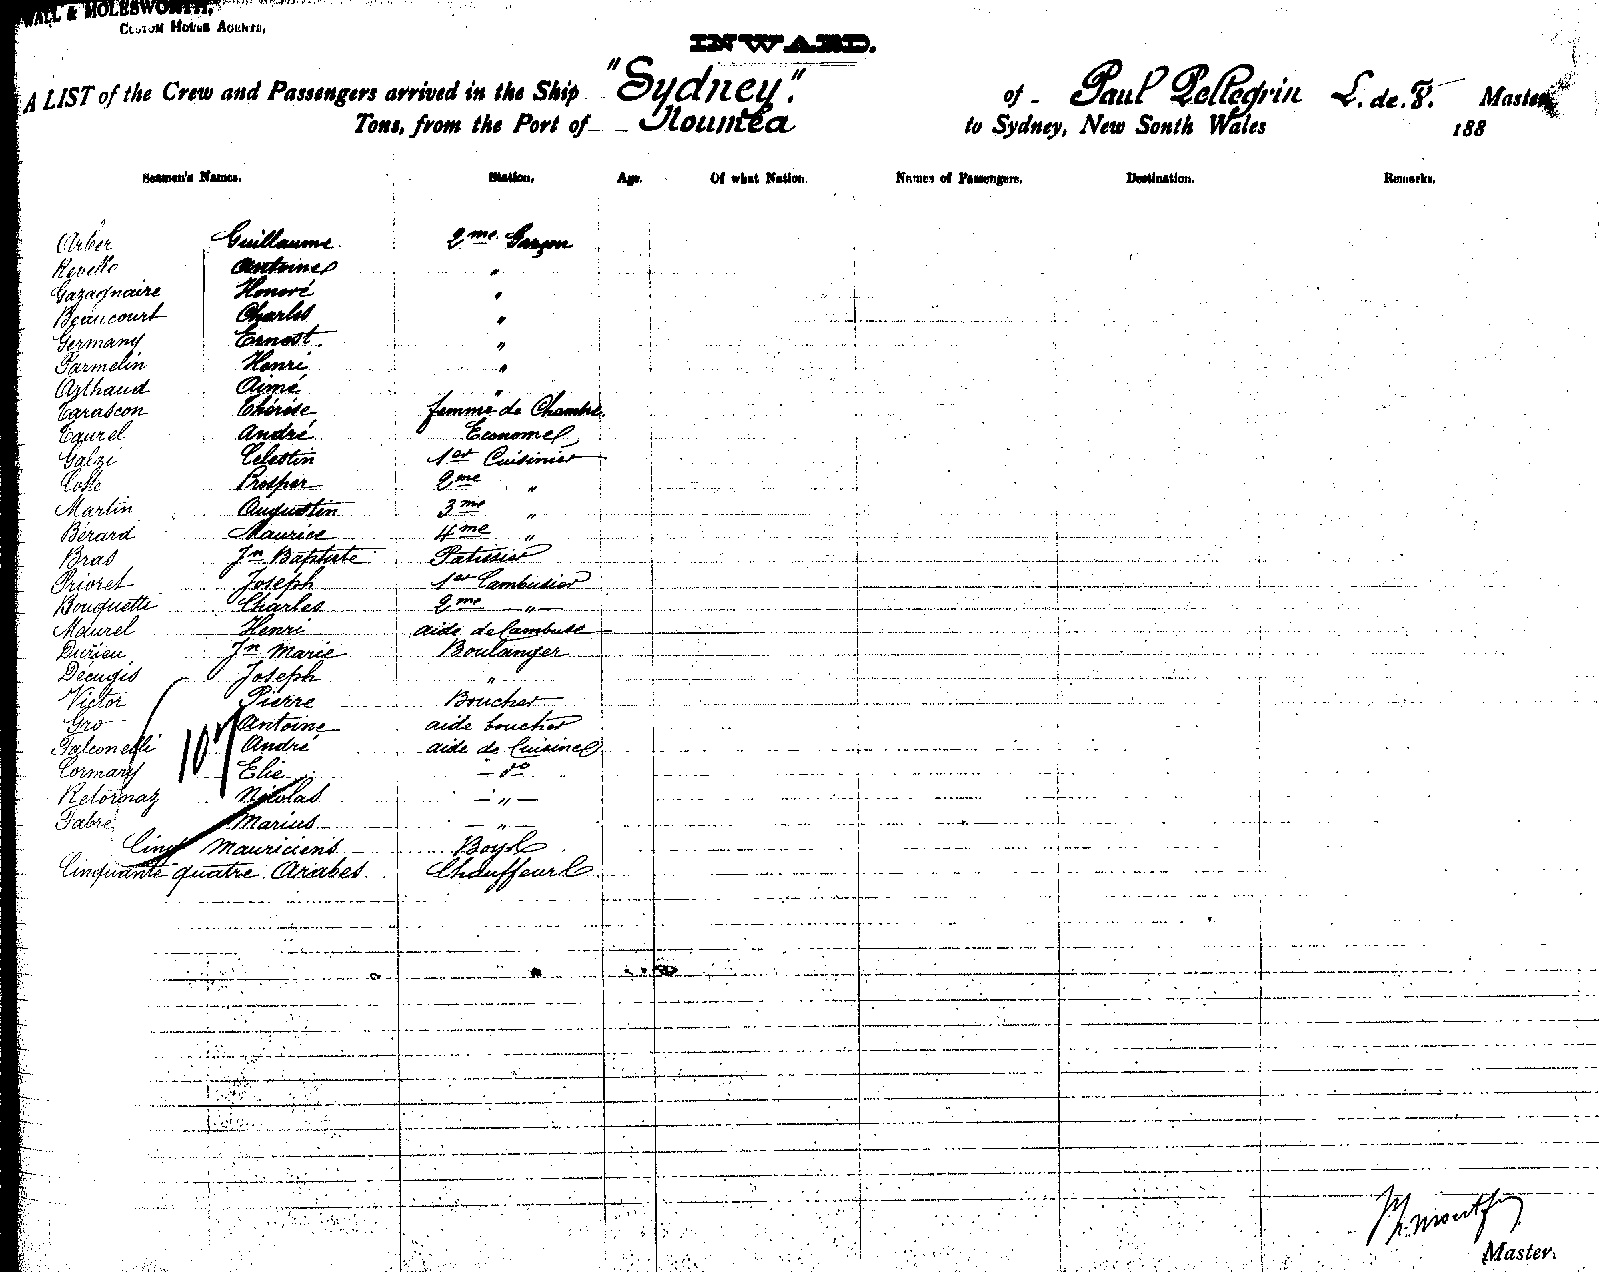 WALL & MOLESWORTH,
CUSTOM HOUSE AGENTS,
INWARD.
A LIST of the Crew and Passengers arrived in the Ship "Sydney". of - Paul Pellegrin L. de. V. Master
Tons, from the Port of Nouméa to Sydney, New South Wales 188
Seamen's Names. Station. Age. Of what Nation. Names of Passengers. Destination. Remarks.
Arber Guillaume 2me Garçon
Revello Antoine "
Gazagnaire Honoré "
Beaucourt Charles "
Germany Ernest "
Parmelin Henri "
Arthaud Aimé "
Tarascon Thérèse femme de Chambre
Taurel André Econome
Galzi Celestin 1er Cuisinier
Coste Prosper 2me "
Martin Augustin 3me "
Bérard Maurice 4me "
Bras Jn Baptiste Patissier
Prioret Joseph 1er Cambusier
Bouquetti Charles 2me "
Maurel Henri aide de Cambuse
Durieu Jn Marie Boulanger
Décugis Joseph "
Victor Pierre Boucher
Gro Antoine aide boucher
Falconetti André aide de Cuisine
107
Cormary Elie - do
Retornaz Nicolas - " -
Fabre Marius - " -
Cinq Mauriciens Boys
Cinquante quatre Arabes Chauffeurs
Master.